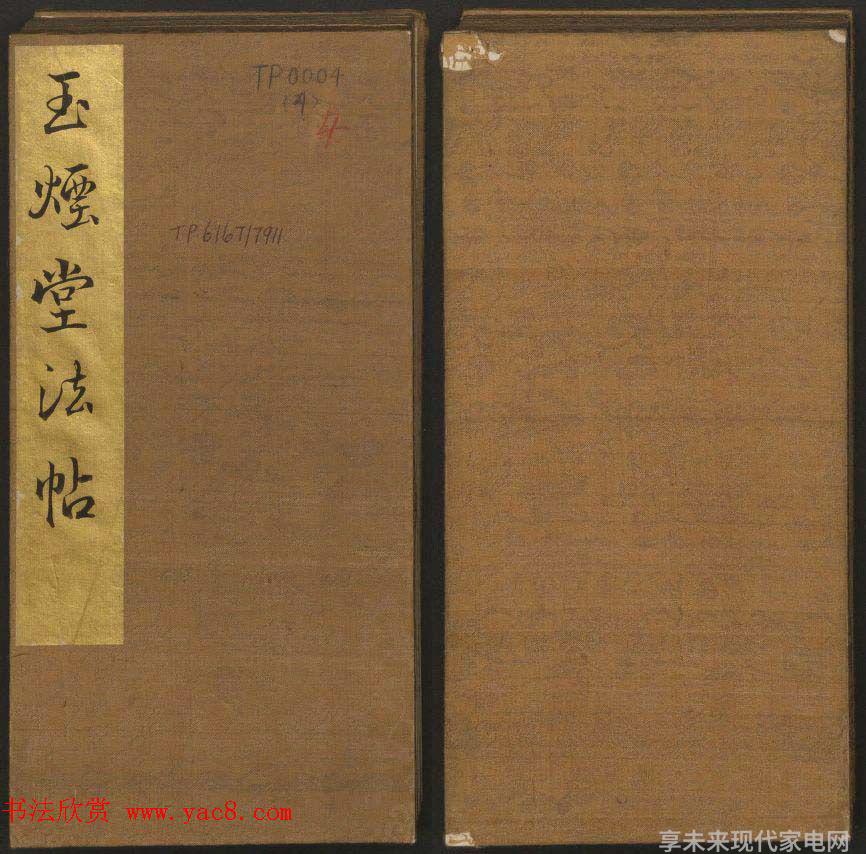 玉煙堂法帖
TP0004
(4)
4
TP6167/7911
书法欣赏 www.yac8.com
享未来现代家电网